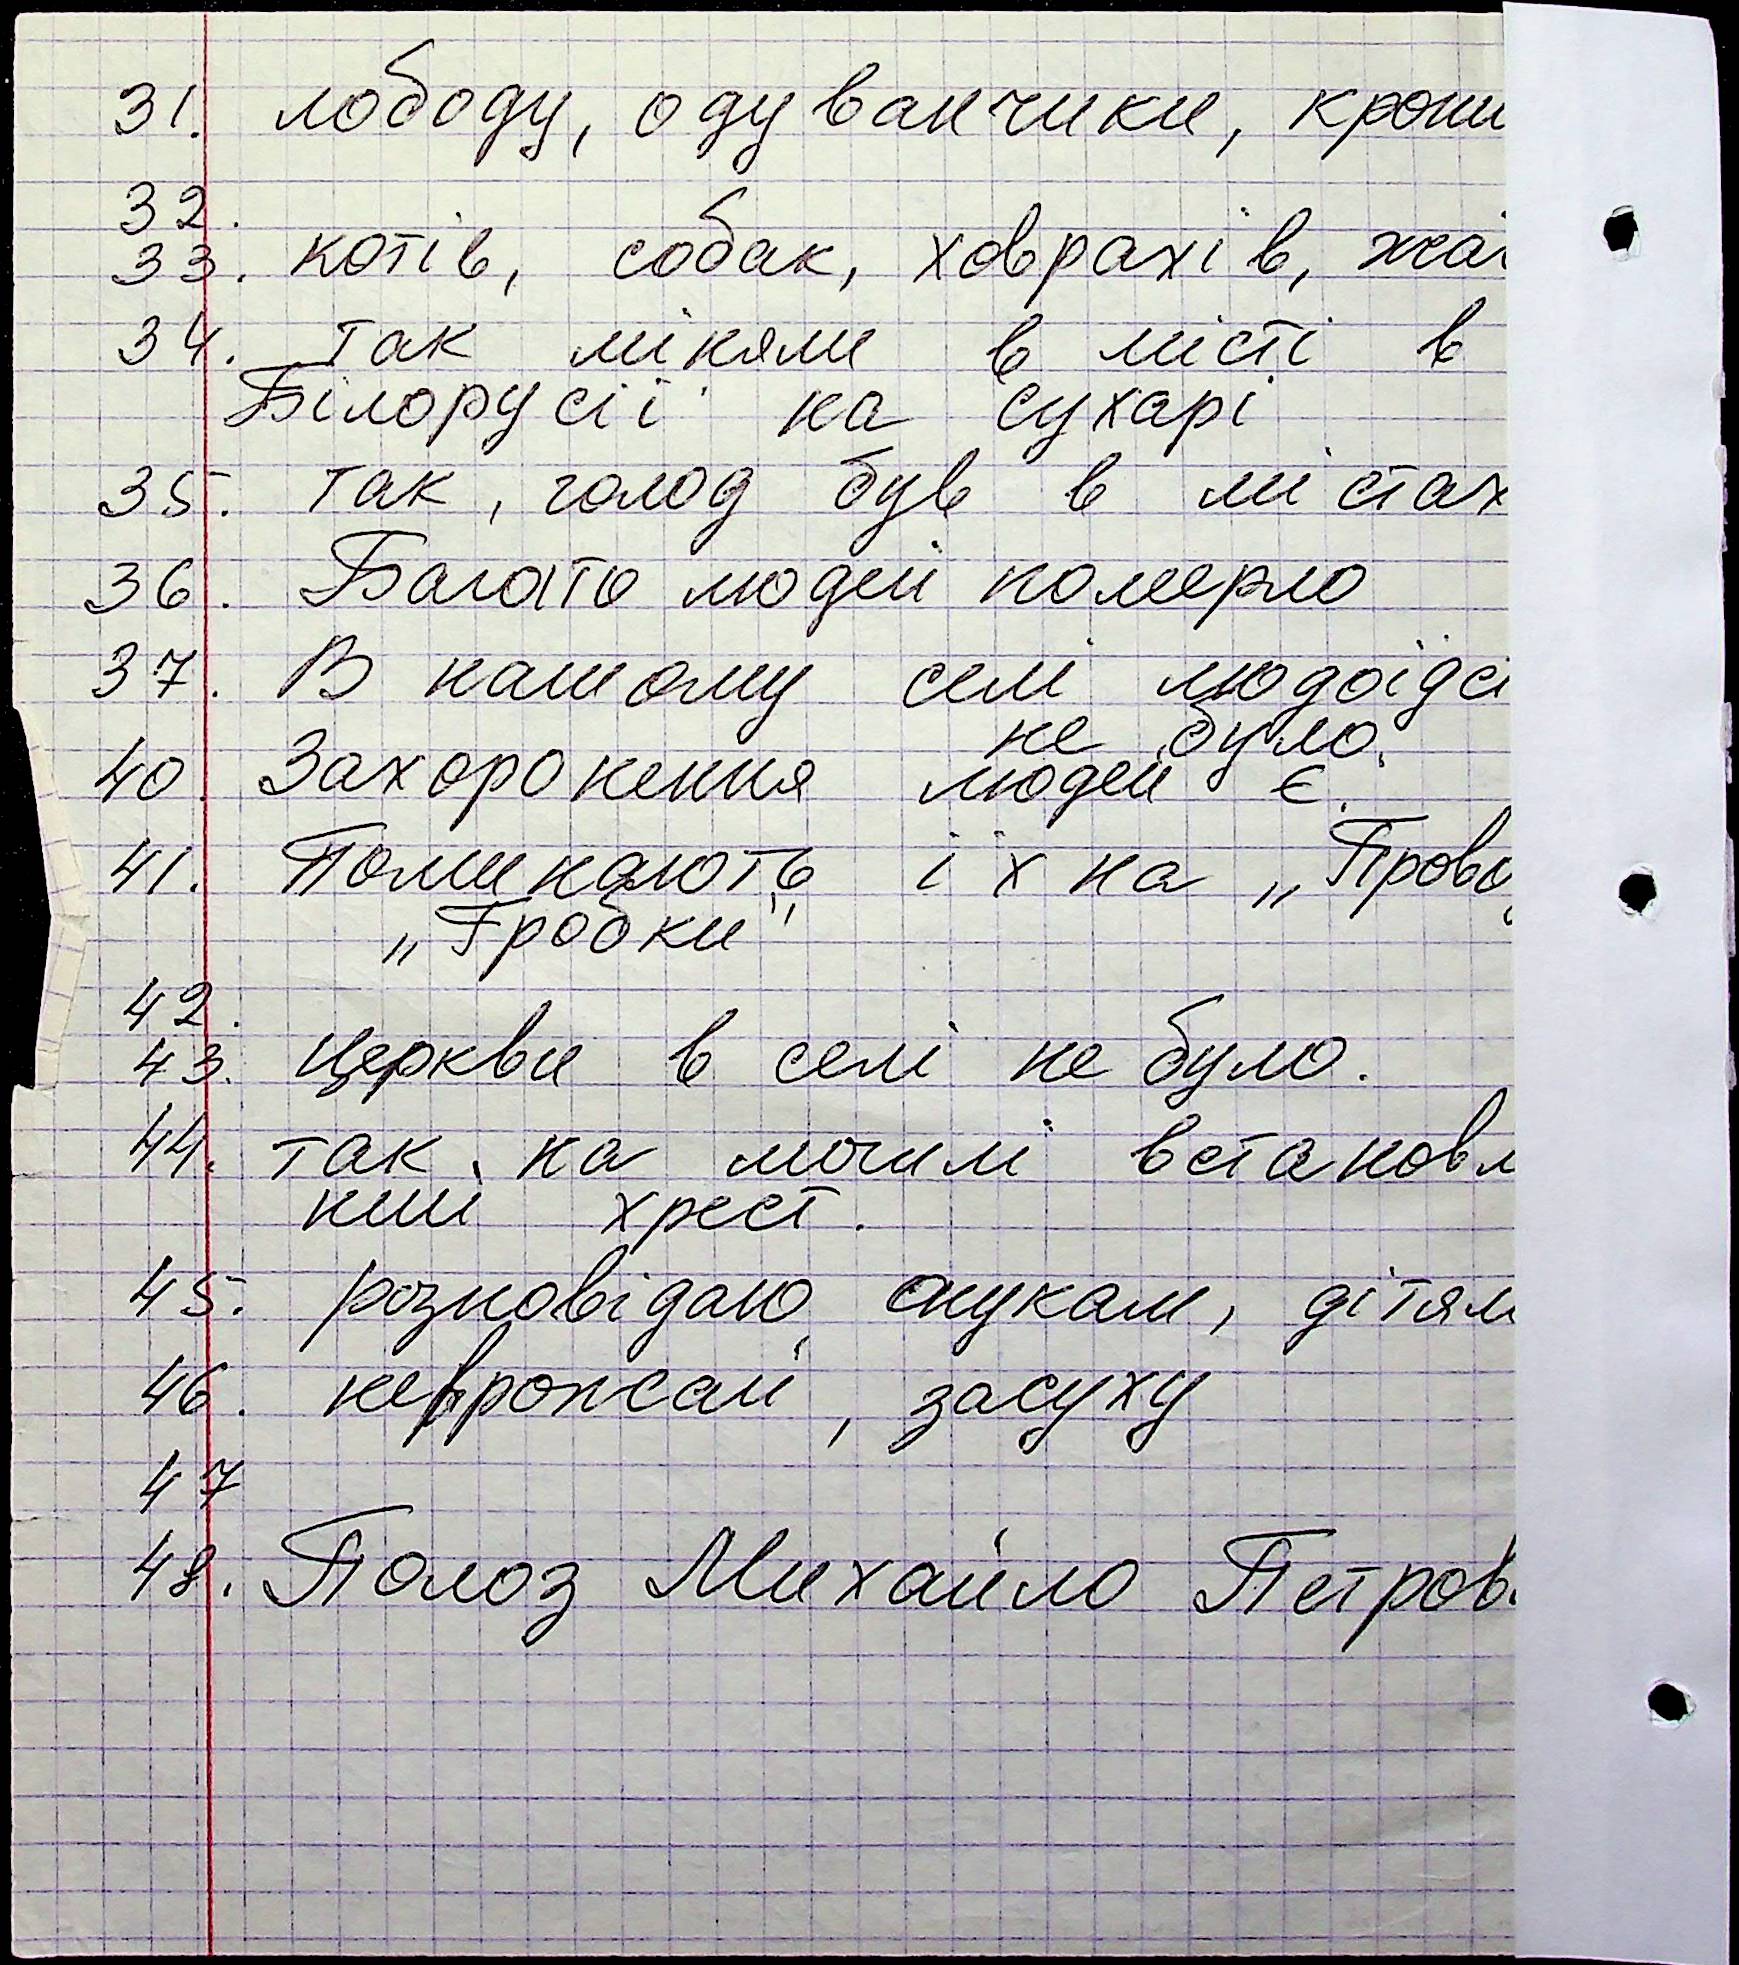 31. лободу, одуванчики, кропи
32.
33. котів, собак, ховрахів, жаі
34. так міняли в місті в
Білорусії на сухарі
35. так, голод був в містах
36. Багато людей померло
37. В нашому селі людоїдсі
не було.
40. Захоронення людей є.
41. Поминають їх на „Прово
„Гробки"
42.
43. церкви в селі не було.
44. так, на могилі встановл
ний хрест.
45. розповідаю онукам, дітям
46. неврожай, засуху
47
48. Полоз Михайло Петров